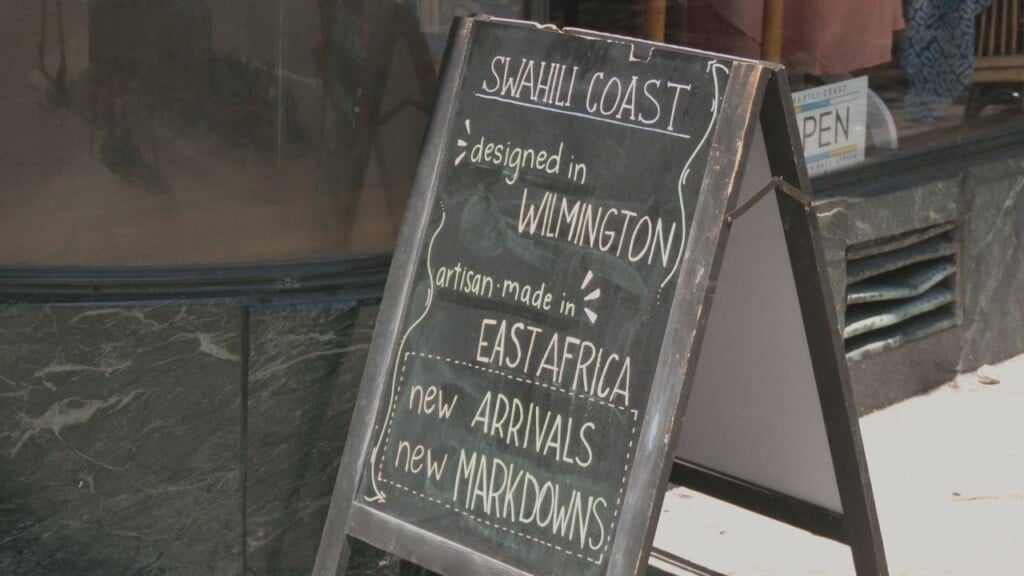 SWAHILI COAST
designed in
WILMINGTON
artisan-made in
EAST AFRICA
new ARRIVALS
new MARKDOWNS
COAST
PEN